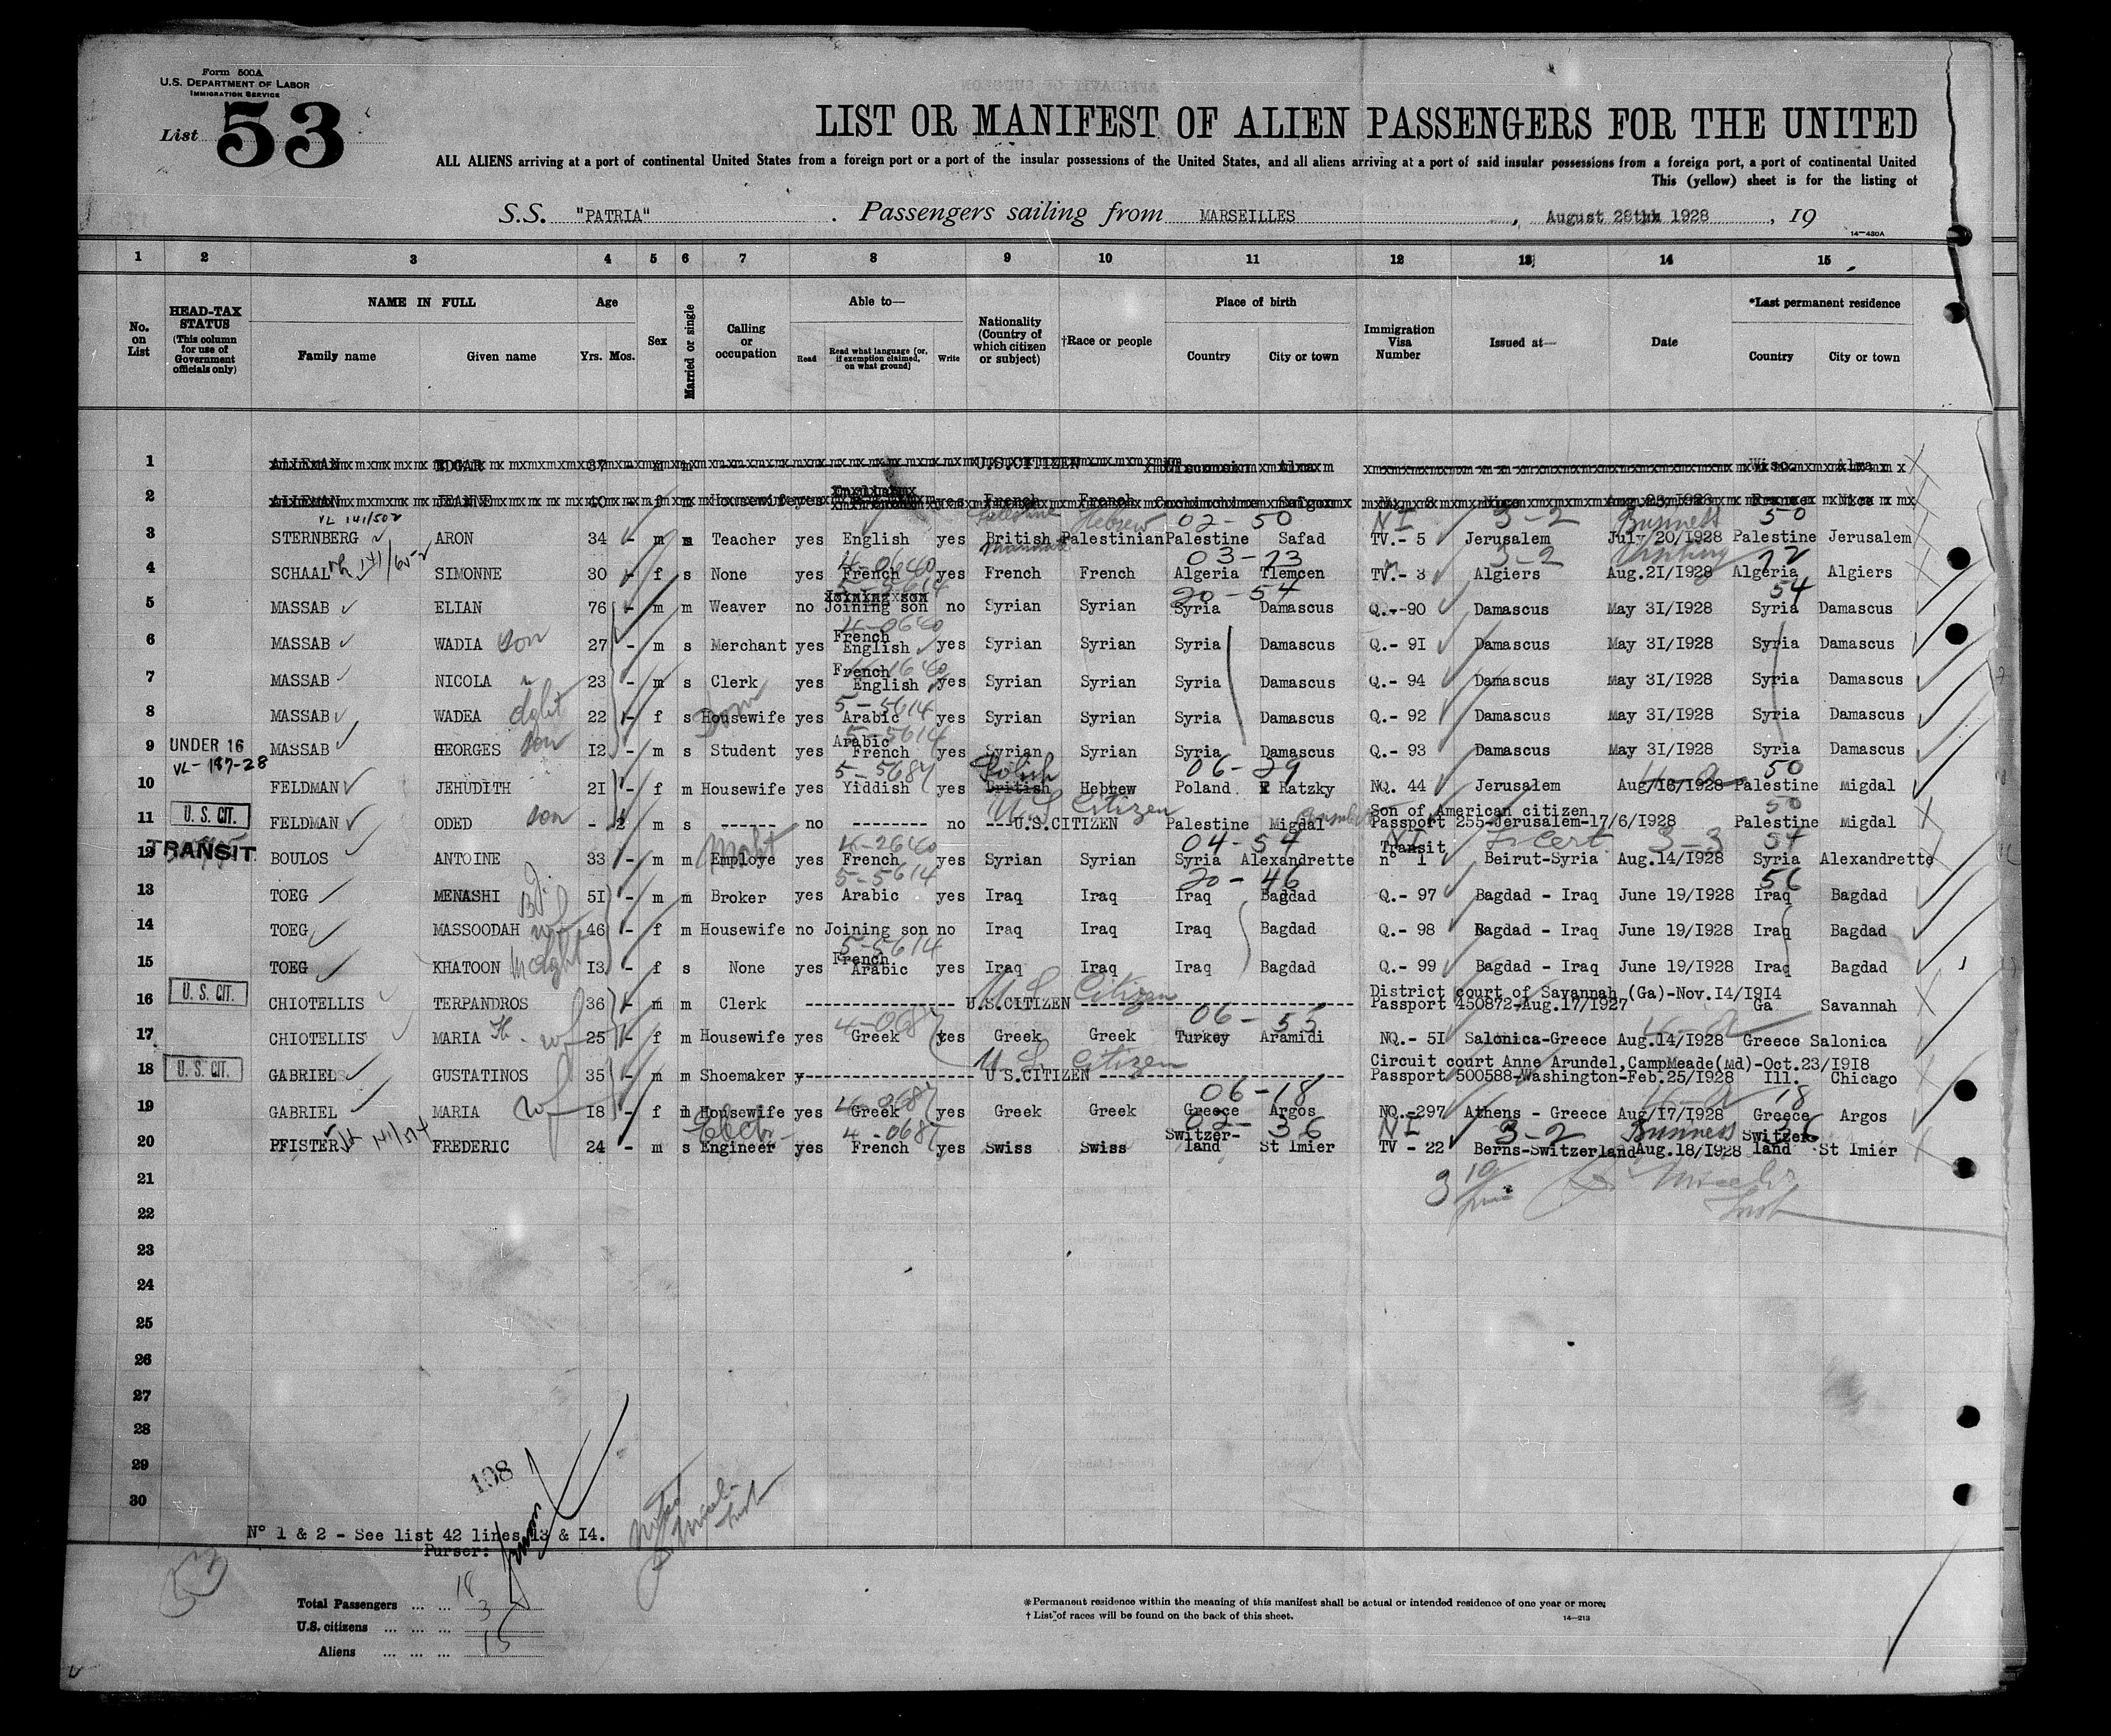 Form 500A
U.S. DEPARTMENT OF LABOR
IMMIGRATION SERVICE
List 53
LIST OR MANIFEST OF ALIEN PASSENGERS FOR THE UNITED
ALL ALIENS arriving at a port of continental United States from a foreign port or a port of the insular possessions of the United States, and all aliens arriving at a port of said insular possessions from a foreign port, a port of continental United
This (yellow) sheet is for the listing of
S.S. "PATRIA" . Passengers sailing from MARSEILLES , August 28th 1928 , 19
14—430A
1 2 3 4 5 6 7 8 9 10 11 12 13 14 15
No. on List
HEAD-TAX STATUS (This column for use of Government officials only)
NAME IN FULL
Family name Given name
Age
Yrs. Mos.
Sex
Married or single
Calling or occupation
Able to—
Read Read what language [or, if exemption claimed, on what ground] Write
Nationality (Country of which citizen or subject)
†Race or people
Place of birth
Country City or town
Immigration Visa Number
Issued at—
Date
*Last permanent residence
Country City or town
1 ALIEMAN EDGAR 37 m m U.S.CITIZEN Wisconsin Alma Wisc. Alma
2 ALIEMAN JEANNE 40 f m Housewife yes English yes French French Cochinchine Saigon 8 Nice Aug. 23/1928 France Nice
VL 141/502 Palestine Hebrew 02-50 NI 3-2 Business 50
3 STERNBERG ARON 34 - m m Teacher yes English yes British Palestinian Palestine Safad TV.- 5 Jerusalem July/20/1928 Palestine Jerusalem
4-0640 03-73 3-2 Visiting 72
4 SCHAAL SIMONNE 30 - f s None yes French yes French French Algeria Tlemcen TV.- 3 Algiers Aug.2I/1928 Algeria Algiers
5-5614 20-54 54
5 MASSAB ELIAN 76 - m m Weaver no Joining son no Syrian Syrian Syria Damascus Q.--90 Damascus May 3I/I928 Syria Damascus
4-0640
6 MASSAB WADIA son 27 - m s Merchant yes French English yes Syrian Syrian Syria Damascus Q.- 9I Damascus May 3I/I928 Syria Damascus
7 MASSAB NICOLA 23 - m s Clerk yes French English yes Syrian Syrian Syria Damascus Q.- 94 Damascus May 3I/I928 Syria Damascus
5-5614
8 MASSAB WADEA dght 22 - f s Housewife yes Arabic yes Syrian Syrian Syria Damascus Q.- 92 Damascus May 3I/I928 Syria Damascus
5-5614
9 UNDER 16 MASSAB GEORGES son I2 - m s Student yes Arabic French yes Syrian Syrian Syria Damascus Q.- 93 Damascus May 3I/I928 Syria Damascus
VL-187-28 5-5687 Polish 06-29 4-2 50
10 FELDMAN JEHUDITH 2I - f m Housewife yes Yiddish yes British Hebrew Poland Ratzky NQ. 44 Jerusalem Aug/16/1928 Palestine Migdal
U.S. Citizen 50
11 U. S. CIT. FELDMAN ODED son - 2 m s ------ no -------- no ---U.S.CITIZEN Palestine Migdal Son of American citizen Passport 255-Jerusalem-17/6/1928 Palestine Migdal
4-2640 04-54 NI 3-3 54
12 TRANSIT BOULOS ANTOINE 33 - m m Employe yes French yes Syrian Syrian Syria Alexandrette Transit n° 1 Beirut-Syria Aug.14/1928 Syria Alexandrette
5-5614 20-46 56
13 TOEG MENASHI 5I - m m Broker yes Arabic yes Iraq Iraq Iraq Bagdad Q.- 97 Bagdad - Iraq June 19/1928 Iraq Bagdad
14 TOEG MASSOODAH wf 46 - f m Housewife no Joining son no Iraq Iraq Iraq Bagdad Q.- 98 Bagdad - Iraq June 19/1928 Iraq Bagdad
5-5614
15 TOEG KHATOON dght I3 - f s None yes French Arabic yes Iraq Iraq Iraq Bagdad Q.- 99 Bagdad - Iraq June 19/1928 Iraq Bagdad
U.S. Citizen
16 U. S. CIT. CHIOTELLIS TERPANDROS 36 - m m Clerk U.S.CITIZEN District court of Savannah (Ga)-Nov.I4/I9I4 Passport 450872-Aug.17/1927 Ga Savannah
4-0687 06-55 4-2
17 CHIOTELLIS MARIA wf 25 - f m Housewife yes Greek yes Greek Greek Turkey Aramidi NQ.- 5I Salonica-Greece Aug.14/1928 Greece Salonica
U.S. Citizen
18 U. S. CIT. GABRIEL GUSTATINOS 35 - m m Shoemaker y U S.CITIZEN Circuit court Anne Arundel,CampMeade(Md)-Oct.23/I9I8 Passport 500588-Washington-Feb.25/1928 Ill. Chicago
4-0687 06-18 4-2 18
19 GABRIEL MARIA wf I8 - f m Housewife yes Greek yes Greek Greek Greece Argos NQ.-297 Athens - Greece Aug/17/1928 Greece Argos
Electr 4-0687 02-36 NI 3-2 Business 36
20 PFISTER FREDERIC 24 - m s Engineer yes French yes Swiss Swiss Switzer-land St Imier TV - 22 Berns-Switzerland Aug.18/I928 Switzer land St Imier
21
22
23
24
25
26
27
28
29
30
108
N° 1 & 2 - See list 42 lines 13 & I4.
Purser:
53
Total Passengers ... ... 18
U.S. citizens ... ... ... 3
Aliens ... ... ... 15
*Permanent residence within the meaning of this manifest shall be actual or intended residence of one year or more.
† List of races will be found on the back of this sheet.
14—213